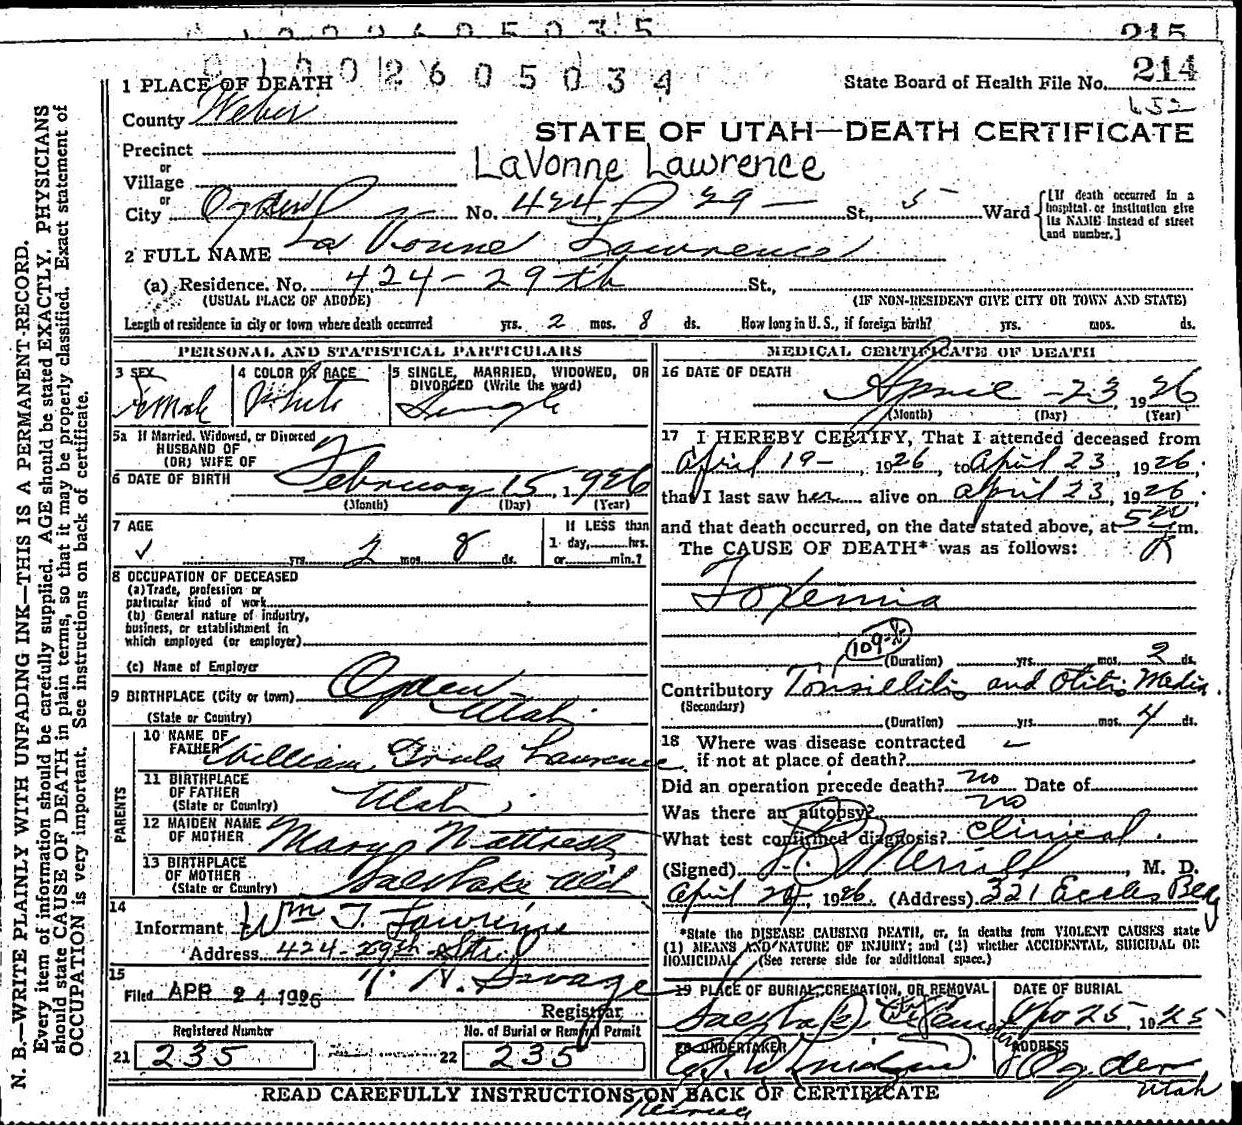 1 9 0 2 6 0 5 0 3 5 215
0 1 0 0 2 6 0 5 0 3 4 214
1 PLACE OF DEATH State Board of Health File No.
County Weber 652
STATE OF UTAH—DEATH CERTIFICATE
Precinct
or
Village
LaVonne Lawrence
or
City Ogden No. 424 29 — St., 5 Ward
[If death occurred in a
hospital or institution give
its NAME instead of street
and number.]
2 FULL NAME La Vonne Lawrence
(a) Residence. No. 424 - 29th St.,
(USUAL PLACE OF ABODE) (IF NON-RESIDENT GIVE CITY OR TOWN AND STATE)
Length of residence in city or town where death occurred yrs. 2 mos. 8 ds. How long in U. S., if foreign birth? yrs. mos. ds.
PERSONAL AND STATISTICAL PARTICULARS
3 SEX Female
4 COLOR OR RACE White
5 SINGLE, MARRIED, WIDOWED, OR
DIVORCED (Write the word)
Single
5a If Married, Widowed, or Divorced
HUSBAND OF
(OR) WIFE OF
6 DATE OF BIRTH February 15, 1926
(Month) (Day) (Year)
7 AGE If LESS than
1 day, hrs.
yrs. 2 mos. 8 ds. or min.?
8 OCCUPATION OF DECEASED
(a) Trade, profession or
particular kind of work
(b) General nature of industry,
business, or establishment in
which employed (or employer)
(c) Name of Employer
9 BIRTHPLACE (City or town) Ogden
(State or Country) Utah
PARENTS
10 NAME OF
FATHER William Lawrence
11 BIRTHPLACE
OF FATHER
(State or Country) Utah
12 MAIDEN NAME
OF MOTHER Mary Nattress
13 BIRTHPLACE
OF MOTHER
(State or Country) Salt Lake Utah
14
Informant Wm T. Lawrence
Address 424-29th
15
Filed APR 24 1926 Savage
Registrar
Registered Number No. of Burial or Removal Permit
21 235 22 235
MEDICAL CERTIFICATE OF DEATH
16 DATE OF DEATH
April - 23, 1926
(Month) (Day) (Year)
17 I HEREBY CERTIFY, That I attended deceased from
April 19 -, 1926, to April 23, 1926,
that I last saw her alive on April 23, 1926,
and that death occurred, on the date stated above, at m.
The CAUSE OF DEATH* was as follows:
Toxemia
109
(Duration) yrs. mos. 2 ds.
Contributory Tonsillitis and Otitis Media
(Secondary)
(Duration) yrs. mos. 4 ds.
18 Where was disease contracted
if not at place of death?
Did an operation precede death? no Date of
Was there an autopsy? no
What test confirmed diagnosis? Clinical
(Signed) Merrill, M. D.
April 24, 1926. (Address) 321 Eccles Bldg
*State the DISEASE CAUSING DEATH, or, in deaths from VIOLENT CAUSES state
(1) MEANS AND NATURE OF INJURY; and (2) whether ACCIDENTAL, SUICIDAL OR
HOMICIDAL. (See reverse side for additional space.)
19 PLACE OF BURIAL, CREMATION, OR REMOVAL DATE OF BURIAL
Salt Lake City Cemetery Apr 25, 1925
20 UNDERTAKER ADDRESS
Ogden
Utah
READ CAREFULLY INSTRUCTIONS ON BACK OF CERTIFICATE
N. B.—WRITE PLAINLY WITH UNFADING INK—THIS IS A PERMANENT RECORD.
Every item of information should be carefully supplied. AGE should be stated EXACTLY. PHYSICIANS
should state CAUSE OF DEATH in plain terms, so that it may be properly classified. Exact statement of
OCCUPATION is very important. See instructions on back of certificate.